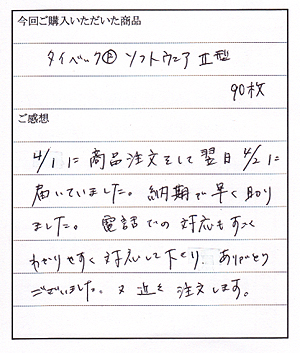 今回ご購入いただいた商品
タイベック®ソフトウェアⅡ型
90枚
ご感想
4/1に商品注文をして翌日4/2に
届いていました。納期で早く助り
ました。電話での対応もすごく
わかりやすく対応して下さり、ありがとう
ございました。又近々注文します。